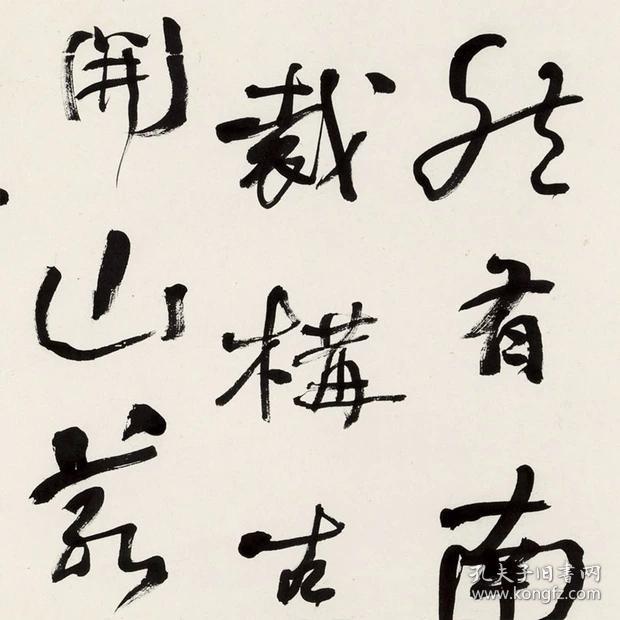 有南
裁構古
開山
孔夫子旧书网
www.kongfz.com